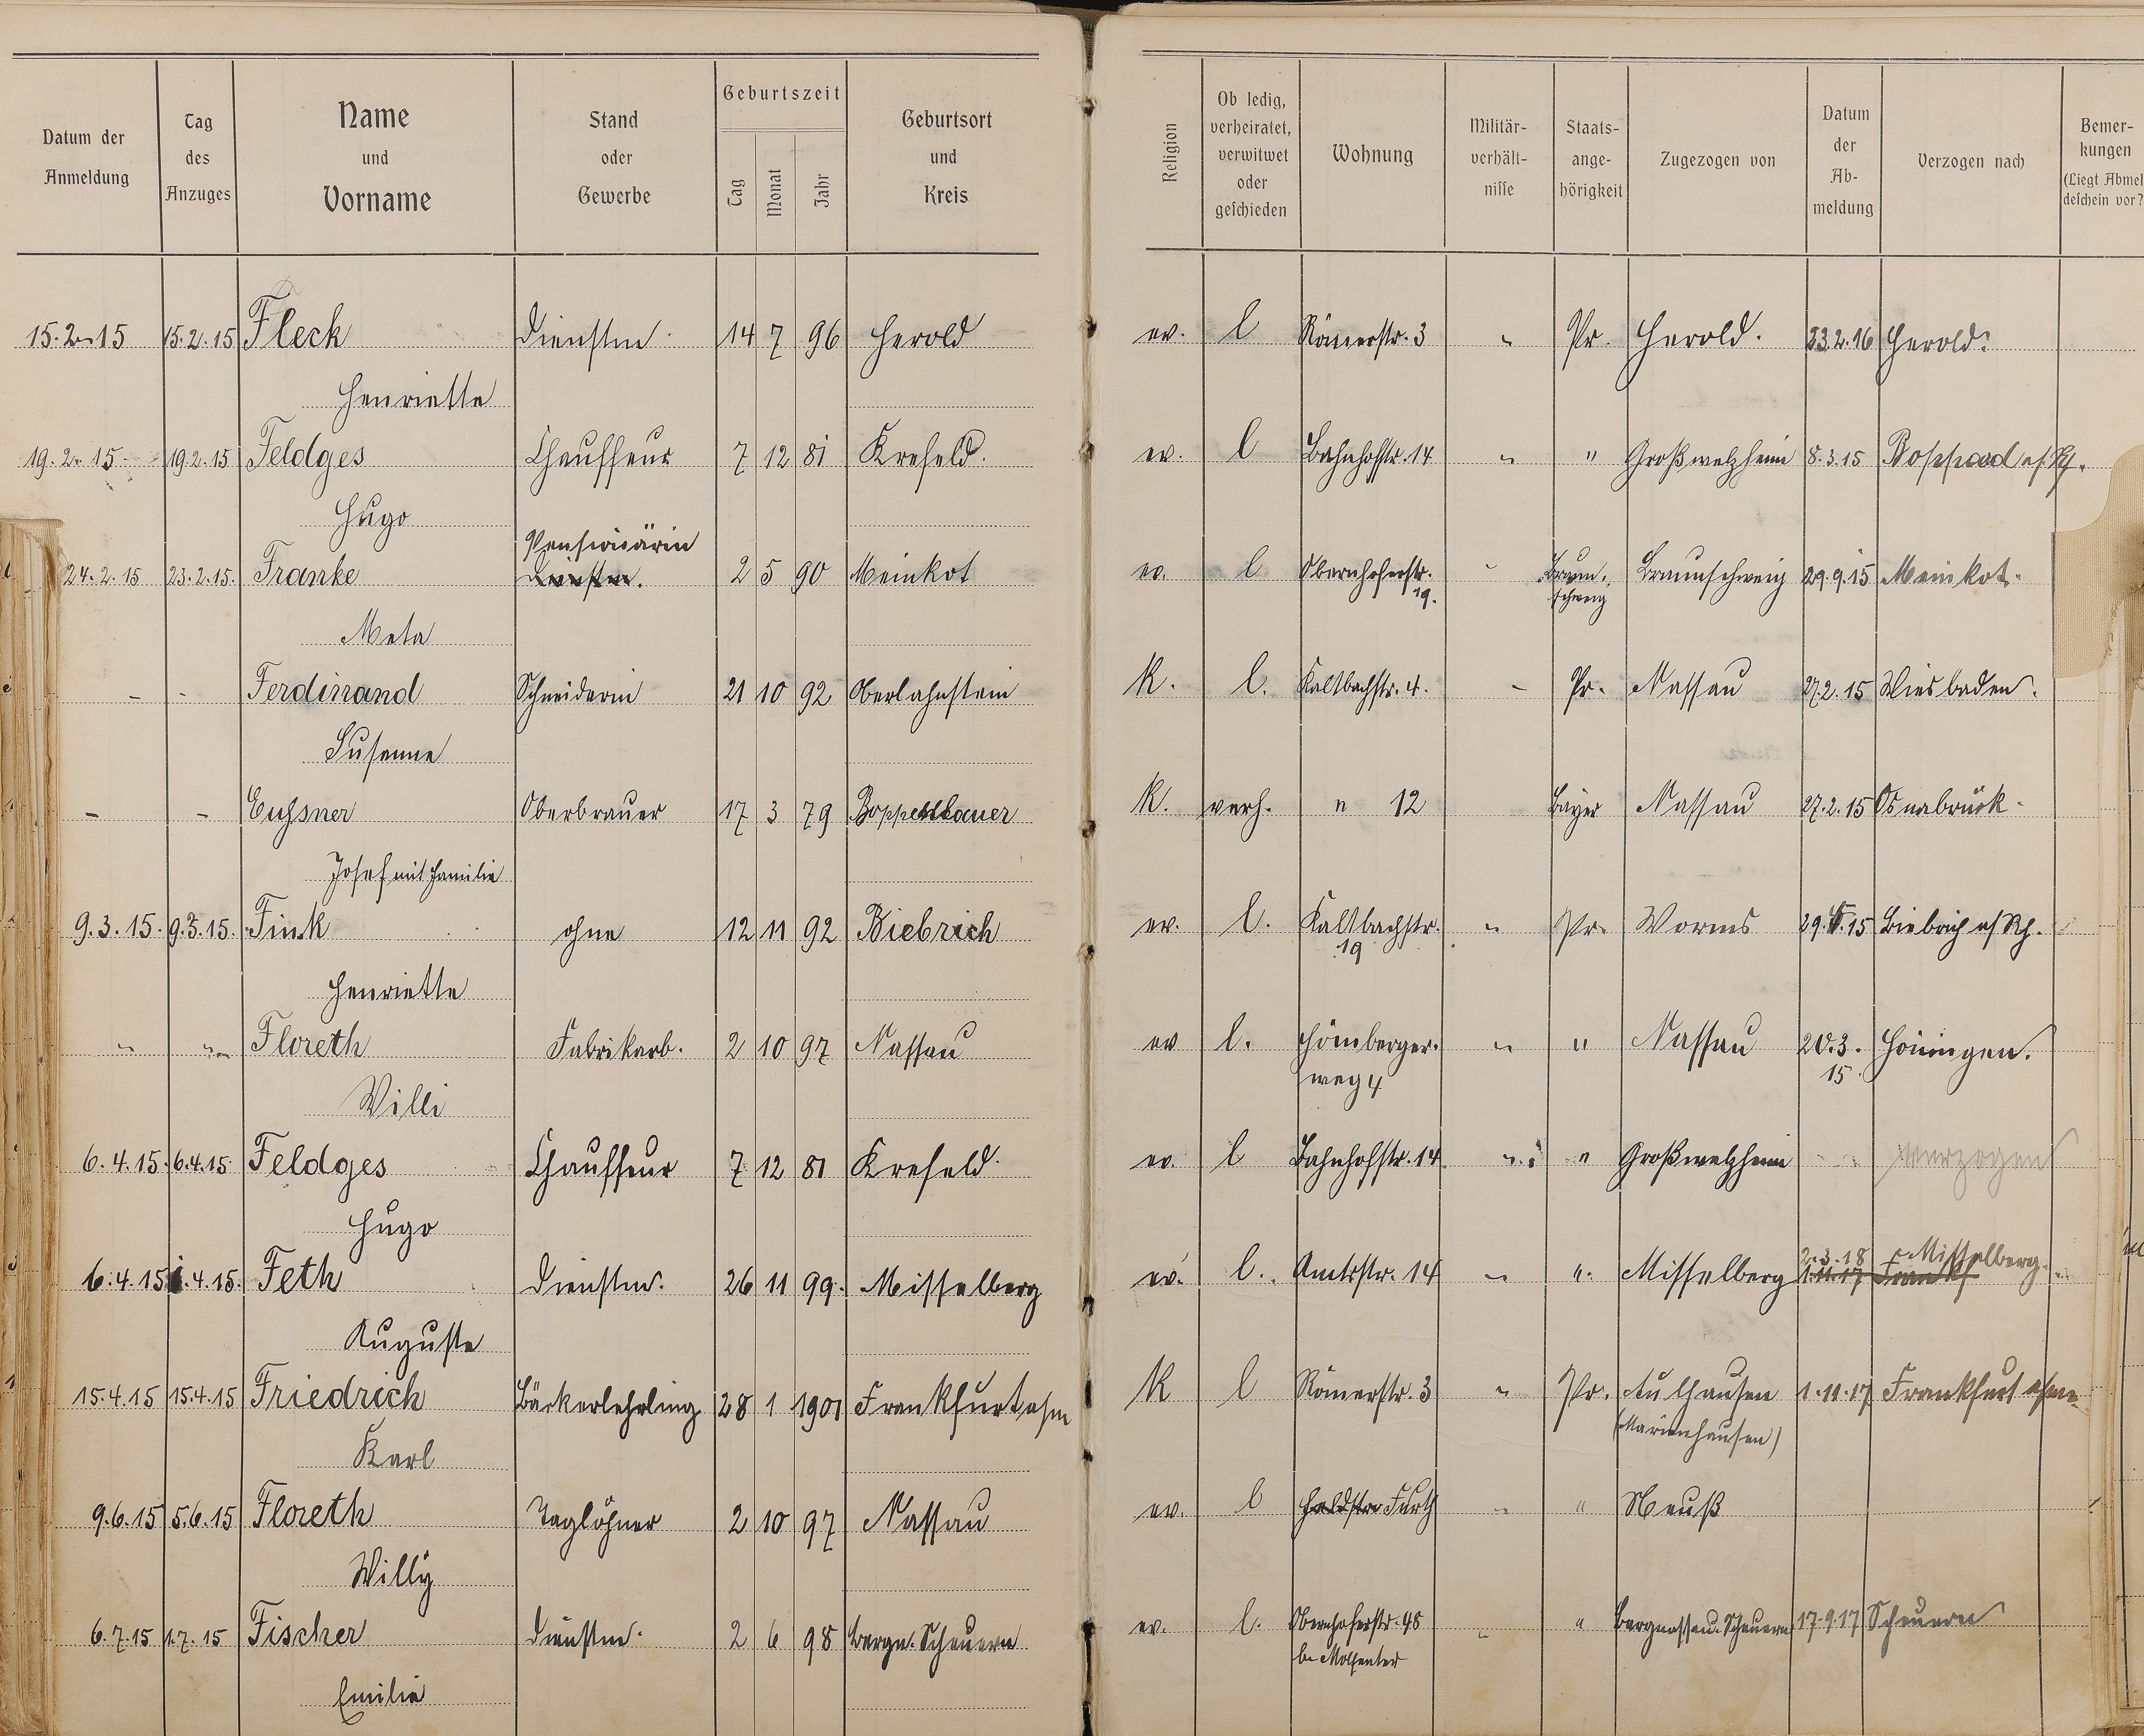 Datum der Anmeldung | Tag des Anzuges | Name und Vorname | Stand oder Gewerbe | Geburtszeit Tag Monat Jahr | Geburtsort und Kreis | Religion | Ob ledig, verheiratet, verwitwet oder geschieden | Wohnung | Militär-verhält-nisse | Staats-ange-hörigkeit | Zugezogen von | Datum der Ab-meldung | Verzogen nach | Bemer-kungen (Liegt Abmel deschein vor?
15.2.15 15.2.15 Fleck Dienstm. 14 7 96 Herold ev. l Römerstr. 3 " Pr. Herold. 23.2.16 Herold.
Henriette
19.2.15 19.2.15 Feldges Chauffeur 7 12 81 Krefeld. ev. l Bahnhofstr. 14 " " Großwelzheim 8.3.15 Boppard a/Rh.
Hugo
Pensionärin
24.2.15 23.2.15. Franke Dienstm. 2 5 90 Meinkot ev. l Obernhoferstr. 19. " Braun-schweig Braunschweig 29.9.15 Meinkot.
Meta
- - Ferdinand Schneiderin 21 10 92 Oberlahnstein K. l. Kaltbachstr. 4. - Pr. Nassau 27.2.15 Wiesbaden.
Susanne
- - Eußner Oberbrauer 17 3 79 K. verh. " 12 Bayer Nassau 27.2.15 Osnabrück.
Josef mit Familie
9.3.15. 9.3.15. Fink ohne 12 11 92 Biebrich ev. l. Kaltbachstr. 19 " Pr. Worms 29.4.15 Biebrich a/Rh.
Henriette
" " Floreth Fabrikarb. 2 10 97 Nassau ev l. Hömberger-weg 4 " " Nassau 20.3.15. Hönningen.
Willi
6.4.15. 6.4.15 Feldges Chauffeur 7 12 81 Krefeld. ev. l Bahnhofstr. 14 " " Großwelzheim verzogen
Hugo
2.3.18 Misselberg
6.4.15 1.4.15. Feth Dienstm. 26 11 99. Misselberg ev. l. Amtsstr. 14 " " Misselberg 1.11.17 Frankf
Auguste
15.4.15 15.4.15 Friedrich Bäckerlehrling 28 1 1901 Frankfurt a/m K l Römerstr. 3 " Pr. Aulhausen 1.11.17 Frankfurt a/m
Karl (Marienhausen)
9.6.15 5.6.15 Floreth Taglöhner 2 10 97 Nassau ev. l Feldstr. Furth " " Neuß
Willy
6.7.15 1.7.15 Fischer Dienstm. 2 6 98 Bergn. Scheuern ev. l. Obernhoferstr. 48 " " Bergnassau-Scheuern 17.9.17 Scheuern
Emilie